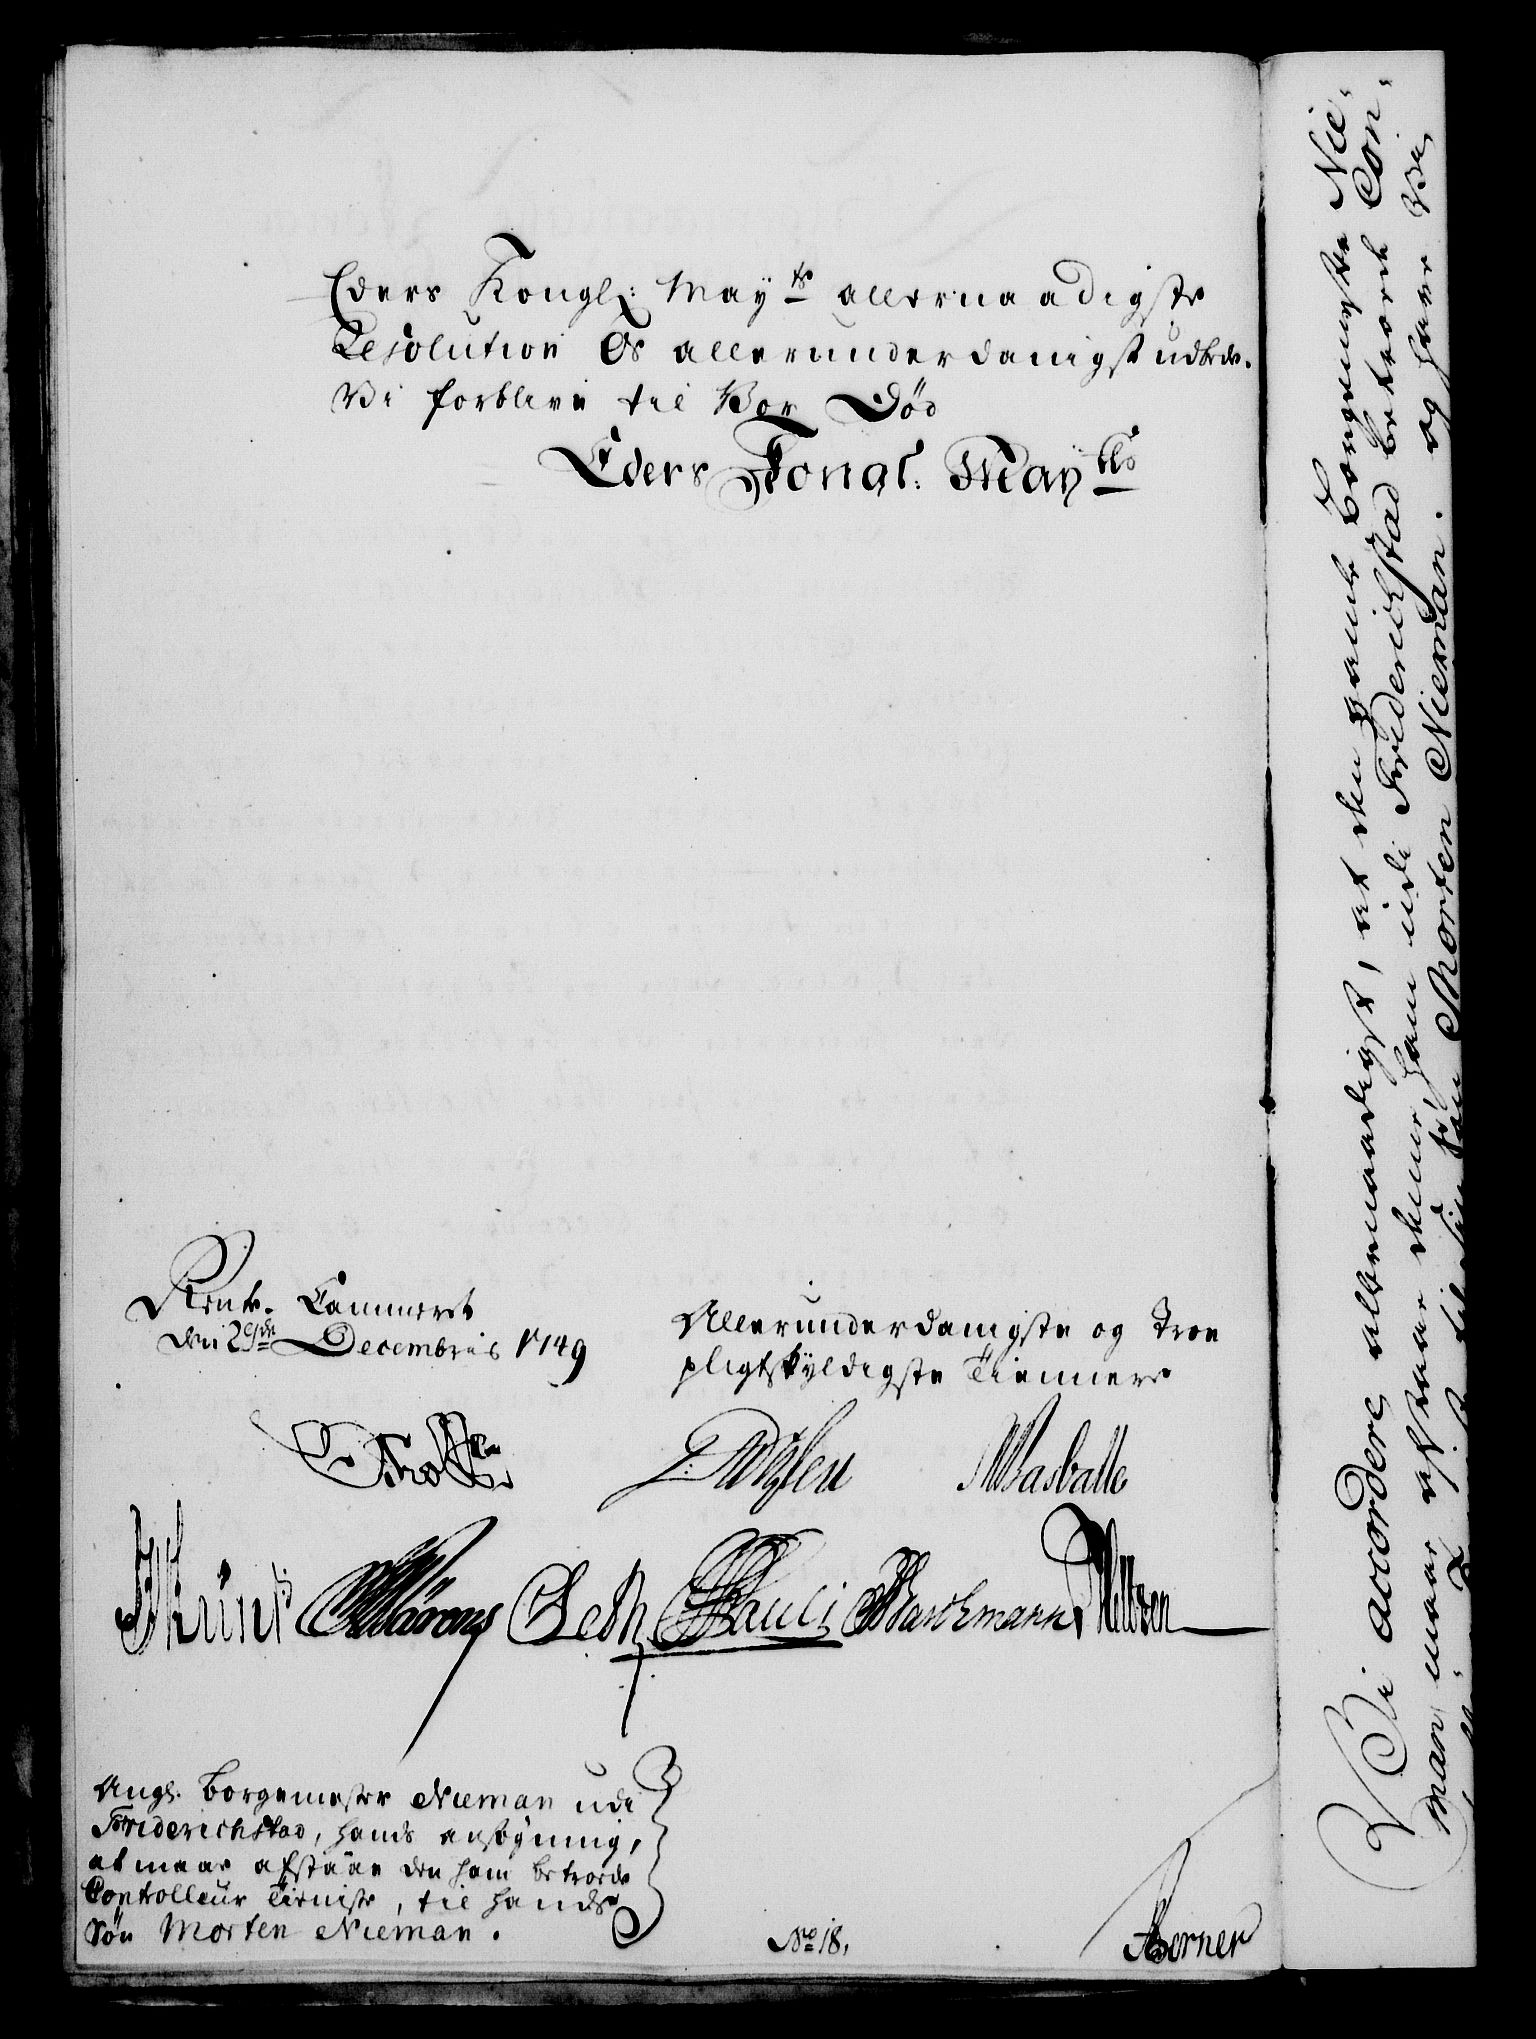 Eders Kongl: May.ts allernaadigste
Resolution Os allerunderdanigst udbede.
Vi forblive til Vor Død
Eders Kongl. May.tts
Rente-Cammeret
den 29.de Decembris 1749
Allerunderdanigste og Troe
pligtskyldigste Tiennere
Seth Pauli
Berner
Ang: Borgemester Nieman udi
Friderichstad, hands ansøgning,
at maae afstaae den ham betroede
Controlleur Tieniste, til hands
Søn Morten Nieman.
No 18,
Vi accordere allernaadigst, at den gamle Borgemester Nie-
man maae afstaae denne ham udi Friderichstad betroede Con-
til sin Søn Morten Nieman. og have Vi